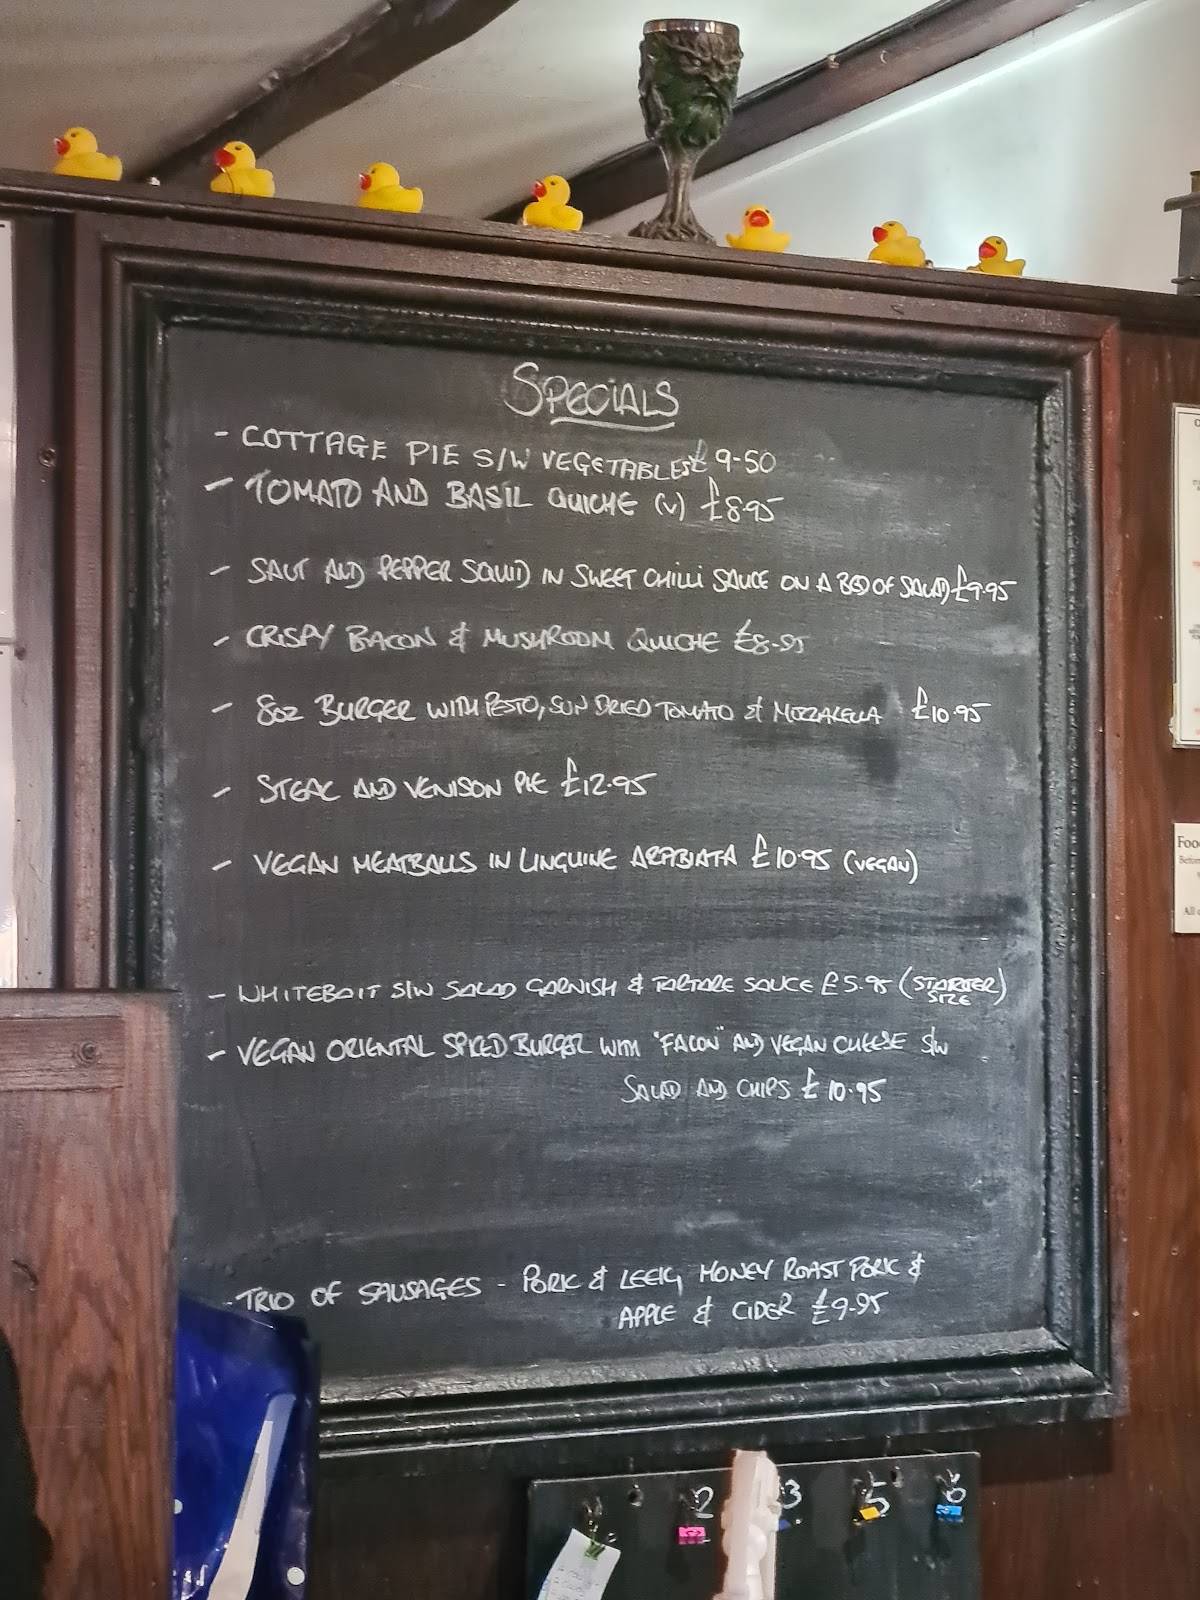 SPECIALS
- COTTAGE PIE S/W VEGETABLES £9-50
- TOMATO AND BASIL QUICHE (V) £8.95
- SALT AND PEPPER SQUID IN SWEET CHILLI SAUCE ON A BED OF SALAD £9.95
- CRISPY BACON & MUSHROOM QUICHE £8-95
- 8oz BURGER WITH PESTO, SUN DRIED TOMATO & MOZZARELLA £10.95
- STEAK AND VENISON PIE £12.95
- VEGAN MEATBALLS IN LINGUINE ARABIATA £10.95 (VEGAN)
- WHITEBAIT S/W SALAD GARNISH & TARTARE SAUCE £5.95 (STARTER SIZE)
- VEGAN ORIENTAL SPICED BURGER WITH "FACON" AND VEGAN CHEESE S/W
SALAD AND CHIPS £10.95
- TRIO OF SAUSAGES - PORK & LEEK, HONEY ROAST PORK &
APPLE & CIDER £9.95
Foo
Before
All
2 3 5 6